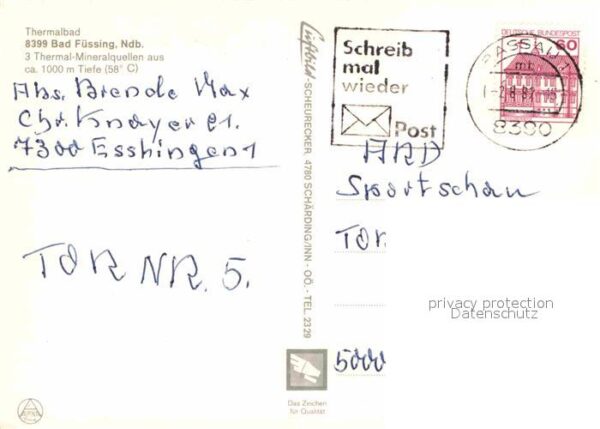 Thermalbad
8399 Bad Füssing, Ndb.
3 Thermal-Mineralquellen aus
ca. 1000 m Tiefe (58° C)
Abs. Brende Max
Chr. Knayer 21.
7300 Esslingen 1
TOR NR. 5.
Luftbild SCHEURECKER 4780 SCHÄRDING/INN - OÖ. - TEL 2329
Schreib
mal
wieder
Post
DEUTSCHE BUNDESPOST
60
PASSAU 1
mb
8390
ARD
Sportschau
TOR
privacy protection
Datenschutz
5000
Das Zeichen
für Qualität